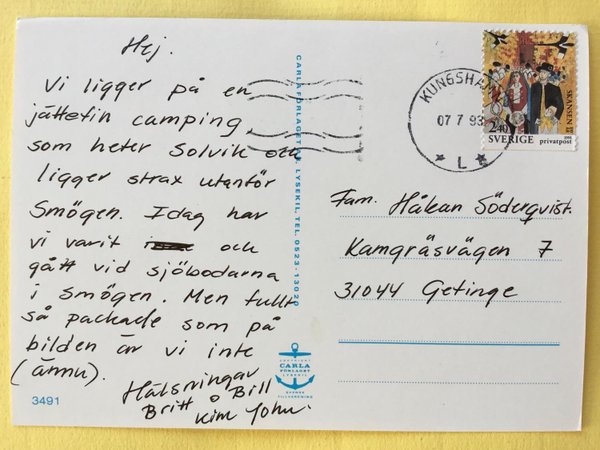 Hej.
Vi ligger på en
jättefin camping,
som heter Solvik och
ligger strax utanför
Smögen. Idag har
vi varit och
gått vid sjöbodarna
i Smögen. Men fullt
så packade som på
bilden är vi inte
(ännu).
Hälsningar
Britt o Bill
Kim John.
3491
CARLA FÖRLAGET LYSEKIL, TEL. 0523-13020
COPYRIGHT
CARLA
FÖRLAGET
LYSEKIL
SVENSK
TILLVERKNING
KUNGSHAMN
07 7 93
* L *
SKANSEN
2.40
SVERIGE privatpost
Fam. Håkan Söderqvist.
Kamgräsvägen 7
31044 Getinge